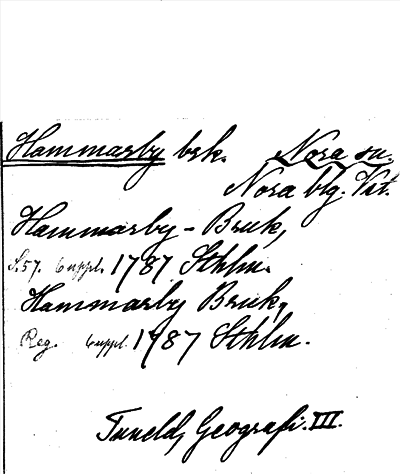 Hammarby brk. Nora sn.
Nora blg. Vst.
Hammarby - Bruk,
S. 57. 6 uppl. 1787 Sthlm.
Hammarby Bruk,
Reg. 6 uppl. 1787 Sthlm.
Tuneld, Geografi. III.